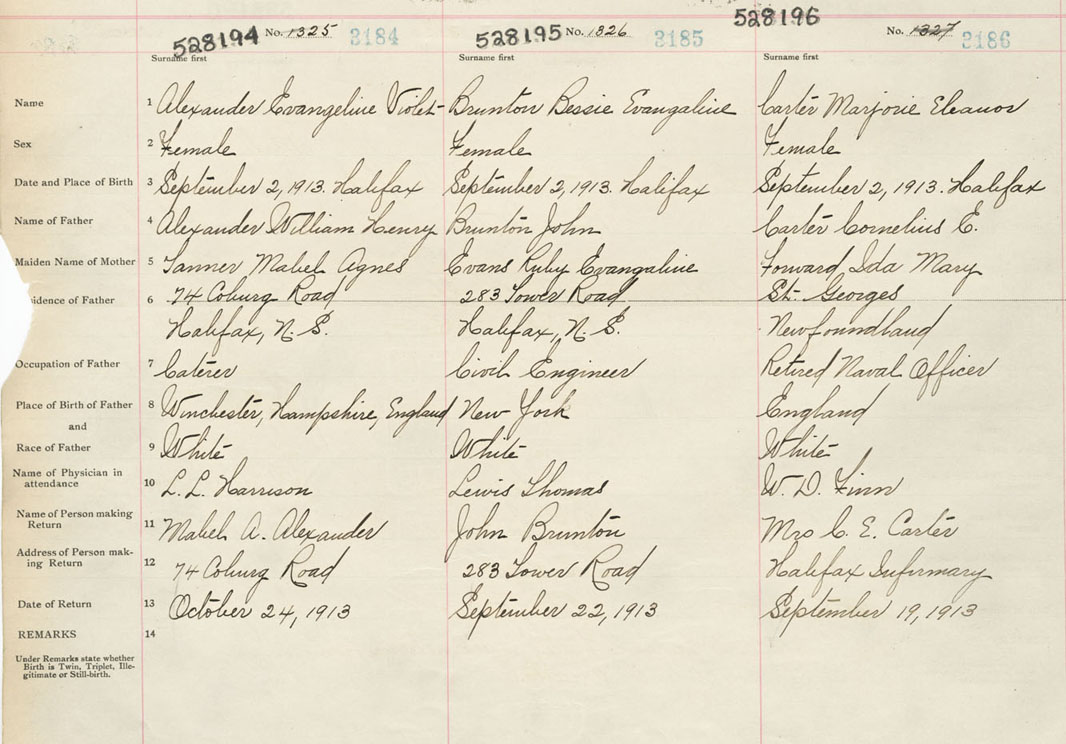 528194 No. 1325 2184 528195 No. 1326 2185 528196 No. 1327 2186
Surname first Surname first Surname first
Name 1 Alexander Evangeline Violet Brunton Bessie Evangaline Carter Marjorie Eleanor
Sex 2 Female Female Female
Date and Place of Birth 3 September 2, 1913. Halifax September 2, 1913. Halifax September 2, 1913. Halifax
Name of Father 4 Alexander William Henry Brunton John Carter Cornelius E.
Maiden Name of Mother 5 Tanner Mabel Agnes Evans Ruby Evangaline Forward Ida Mary
idence of Father 6 74 Coburg Road 283 Tower Road St. Georges
Halifax, N. S. Halifax, N. S. Newfoundland
Occupation of Father 7 Caterer Civil Engineer Retired Naval Officer
Place of Birth of Father 8 Winchester, Hampshire, England New York England
and
Race of Father 9 White White White
Name of Physician in
attendance 10 L. L. Harrison Lewis Thomas W. D. Finn
Name of Person making
Return 11 Mabel A. Alexander John Brunton Mrs C. E. Carter
Address of Person mak-
ing Return 12 74 Coburg Road 283 Tower Road Halifax Infirmary
Date of Return 13 October 24, 1913 September 22, 1913 September 19, 1913
REMARKS 14
Under Remarks state whether
Birth is Twin, Triplet, Ille-
gitimate or Still-birth.